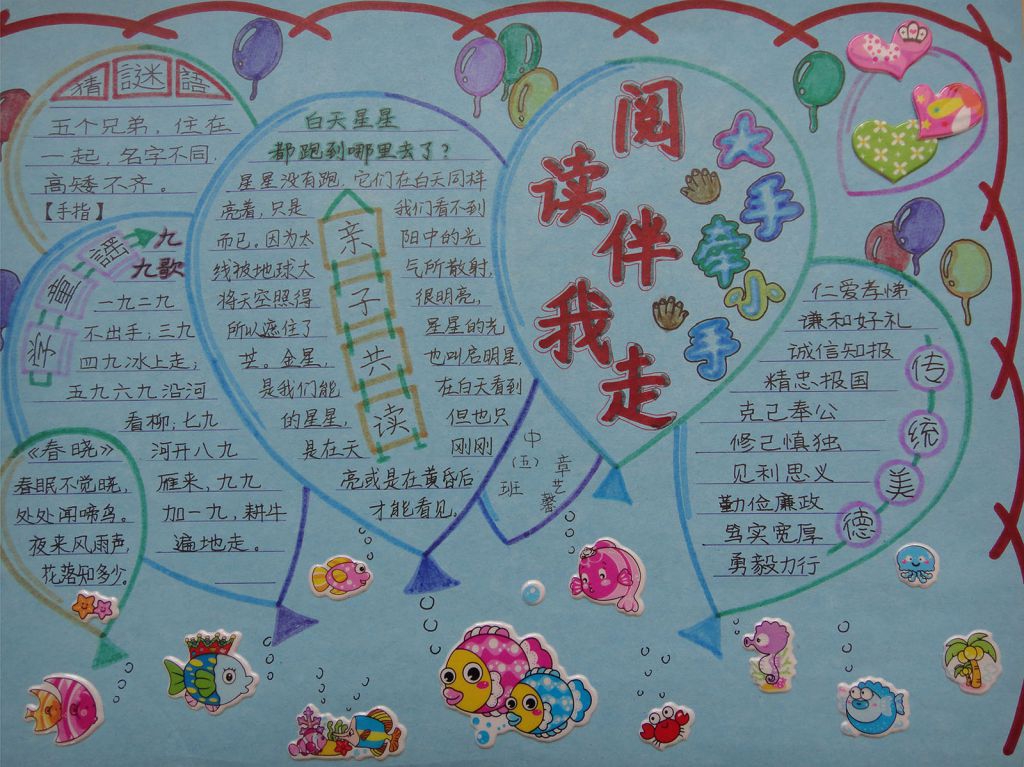 猜谜語
五个兄弟，住在
一起，名字不同，
高矮不齐。
【手指】
学童謡
九
九歌
一九二九
不出手；三九
四九冰上走；
五九六九沿河
看柳；七九
河开八九
雁来，九九
加一九，耕牛
遍地走。
《春晓》
春眠不觉晓，
处处闻啼鸟。
夜来风雨声，
花落知多少。
白天星星
都跑到哪里去了？
星星没有跑，它们在白天同样
亮着，只是 我们看不到
而已。因为太 阳中的光
线被地球大 气所散射，
将天空照得 很明亮，
所以遮住了 星星的光
芒。金星， 也叫启明星，
是我们能 在白天看到
的星星， 但也只
是在天 刚刚
亮或是在黄昏后
才能看见。
亲子共读
阅读伴我走
大手牵小手
中（五）班
章艺馨
仁爱孝悌
谦和好礼
诚信知报
精忠报国
克己奉公
修己慎独
见利思义
勤俭廉政
笃实宽厚
勇毅力行
传统美德